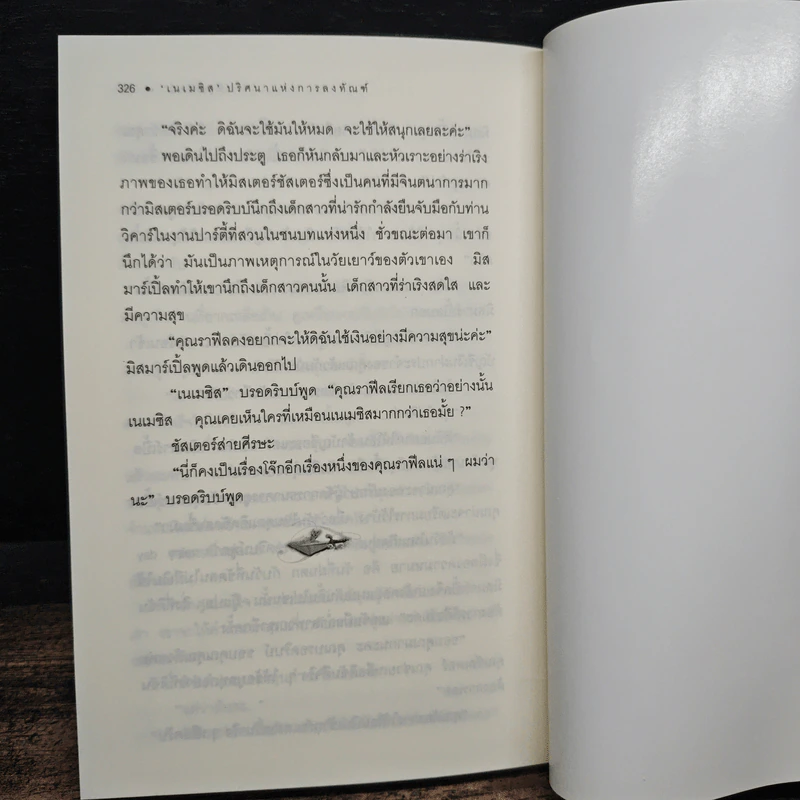 326 • 'เนเมซิส' ปริศนาแห่งการลงทัณฑ์
“จริงค่ะ ดิฉันจะใช้มันให้หมด จะใช้ให้สนุกเลยละค่ะ”
พอเดินไปถึงประตู เธอก็หันกลับมาและหัวเราะอย่างร่าเริง
ภาพของเธอทำให้มิสเตอร์ชัสเตอร์ซึ่งเป็นคนที่มีจินตนาการมาก
กว่ามิสเตอร์บรอดริบบ์นึกถึงเด็กสาวที่น่ารักกำลังยืนจับมือกับท่าน
วิคาร์ในงานปาร์ตี้ที่สวนในชนบทแห่งหนึ่ง ชั่วขณะต่อมา เขาก็
นึกได้ว่า มันเป็นภาพเหตุการณ์ในวัยเยาว์ของตัวเขาเอง มิส
มาร์เปิ้ลทำให้เขานึกถึงเด็กสาวคนนั้น เด็กสาวที่ร่าเริงสดใส และ
มีความสุข
“คุณราฟีลคงอยากจะให้ดิฉันใช้เงินอย่างมีความสุขน่ะค่ะ”
มิสมาร์เปิ้ลพูดแล้วเดินออกไป
“เนเมซิส” บรอดริบบ์พูด “คุณราฟีลเรียกเธอว่าอย่างนั้น
เนเมซิส คุณเคยเห็นใครที่เหมือนเนเมซิสมากกว่าเธอมั้ย ?”
ชัสเตอร์ส่ายศีรษะ
“นี่ก็คงเป็นเรื่องโจ๊กอีกเรื่องหนึ่งของคุณราฟีลแน่ ๆ ผมว่า
นะ” บรอดริบบ์พูด